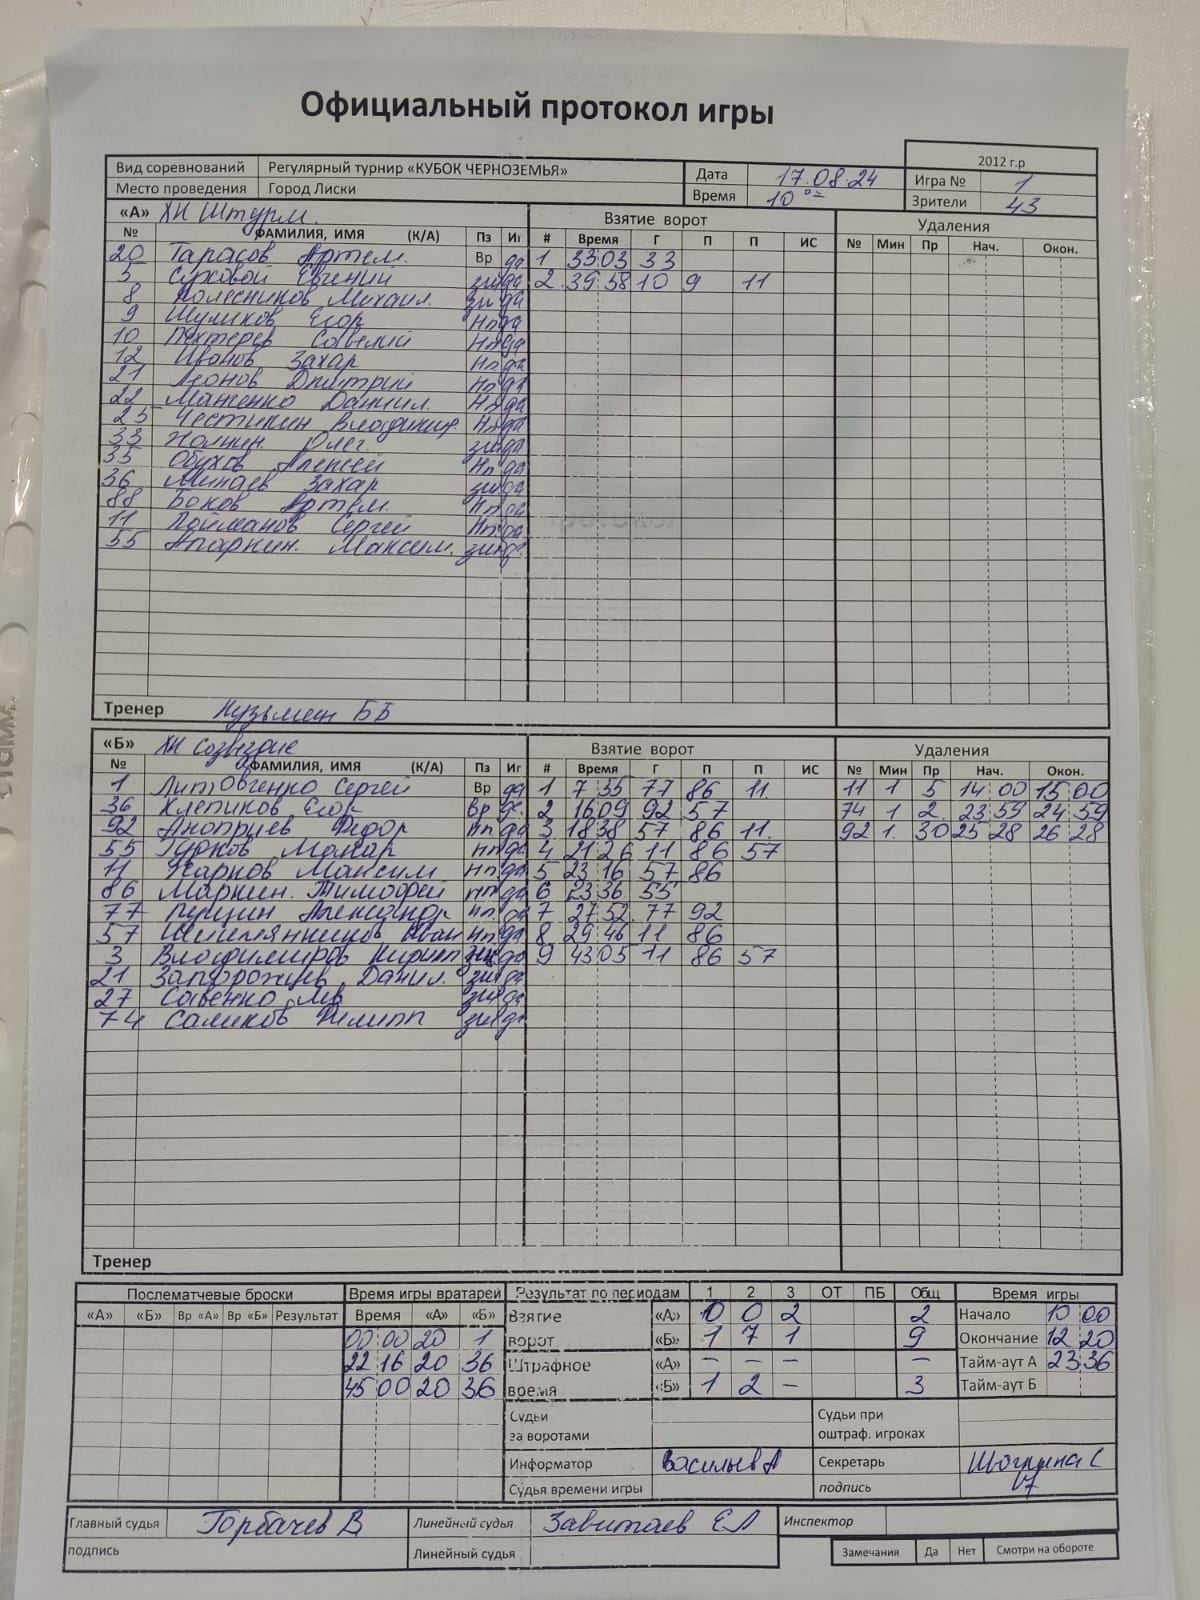 Официальный протокол игры
2012 г.р
Вид соревнований Регулярный турнир «КУБОК ЧЕРНОЗЕМЬЯ» Дата 17.08.24 Игра № 1
Место проведения Город Лиски Время 10 00 Зрители 43
«А» ХК Штурм. Взятие ворот Удаления
№ ФАМИЛИЯ, ИМЯ (К/А) Пз Иг # Время Г П П ИС № Мин Пр Нач. Окон.
20 Тарасов Артем. Вр да 1 33 03 33
5 Суховой Евгений зщ да 2 39 58 10 9 11
8 Колесников Михаил. зщ да
9 Шуликов Егор Нп да
10 Пехтерев Савелий Нп да
12 Иванов Захар Нп да
21 Леонов Дмитрий Нп да
22 Манченко Даниил. Нп да
25 Честикин Владимир. Нп да
33 Жолнин Олег. зщ да
35 Обухов Алексей Нп да
36 Минаев Захар зщ да
88 Боков Артем. Нп да
11 Пойманов Сергей Нп да
55 Апаркин. Максим. зщ да
Тренер Кузьмин Б Б
«Б» ХК Созвездие Взятие ворот Удаления
№ ФАМИЛИЯ, ИМЯ (К/А) Пз Иг # Время Г П П ИС № Мин Пр Нач. Окон.
1 Литовченко Сергей Вр да 1 7 35 77 86 11. 11 1 5 14 00 15 00
36 Клепиков Егор Вр да 2 16 09 92 57 74 1 2. 23 59 24 59
92 Аноприев Федор нп да 3 18 38 57 86 11. 92 1. 30 25 28 26 28
55 Гурков Макар нп да 4 21 26 11 86 57
11 Жарков Максим нп да 5 23 16 57 86
86 Маркин. Тимофей нп да 6 23 36 55
77 Пущин Александр нп. да 7 27 52 77 92
57 Шишлянников Иван нп да 8 29 46 11 86
3 Владимиров Кирилл зщ да 9 43 05 11 86 57
21 Запорожцев Данил. зщ да
27 Савенко Лев зщ да
74 Саликов Филипп зщ да
Тренер
Послематчевые броски Время игры вратарей Результат по периодам 1 2 3 ОТ ПБ Общ Время игры
«А» «Б» Вр «А» Вр «Б» Результат Время «А» «Б» Взятие «А» 0 0 2 2 Начало 10 00
00 00 20 1 ворот «Б» 1 7 1 9 Окончание 12 20
22 16 20 36 Штрафное «А» – – – – Тайм-аут А 23 36
45 00 20 36 время «Б» 1 2 – 3 Тайм-аут Б
Судьи за воротами Судьи при оштраф. игроках
Информатор Васильев А Секретарь
Судья времени игры подпись
Главный судья Горбачев В Линейный судья Завитаев Е Л Инспектор
подпись Линейный судья Замечания Да Нет Смотри на обороте